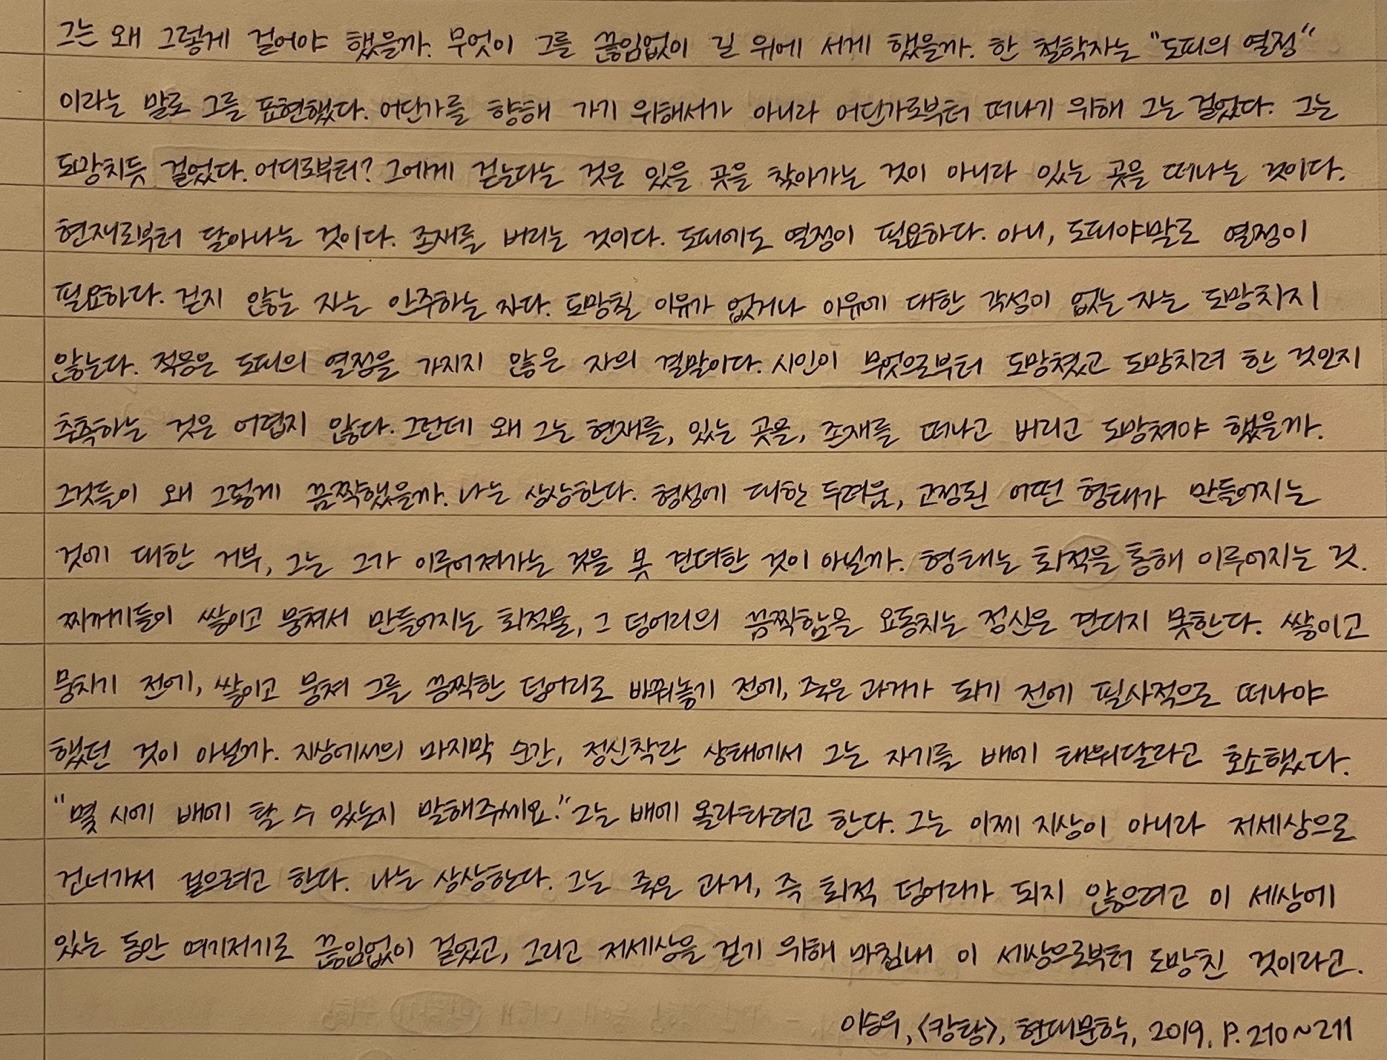 그는 왜 그렇게 걸어야 했을까. 무엇이 그를 끊임없이 길 위에 서게 했을까. 한 철학자는 "도피의 열정"
이라는 말로 그를 표현했다. 어딘가를 향해 가기 위해서가 아니라 어딘가로부터 떠나기 위해 그는 걸었다. 그는
도망치듯 걸었다. 어디로부터? 그에게 걷는다는 것은 있을 곳을 찾아가는 것이 아니라 있는 곳을 떠나는 것이다.
현재로부터 달아나는 것이다. 존재를 버리는 것이다. 도피에도 열정이 필요하다. 아니, 도피야말로 열정이
필요하다. 걷지 않는 자는 안주하는 자다. 도망칠 이유가 없거나 이유에 대한 각성이 없는 자는 도망치지
않는다. 적응은 도피의 열정을 가지지 않은 자의 결말이다. 시인이 무엇으로부터 도망쳤고 도망치려 한 것인지
추측하는 것은 어렵지 않다. 그런데 왜 그는 현재를, 있는 곳을, 존재를 떠나고 버리고 도망쳐야 했을까.
그것들이 왜 그렇게 끔찍했을까. 나는 상상한다. 형성에 대한 두려움, 고정된 어떤 형태가 만들어지는
것에 대한 거부, 그는 그가 이루어져가는 것을 못 견뎌한 것이 아닐까. 형태는 퇴적을 통해 이루어지는 것.
찌꺼기들이 쌓이고 뭉쳐서 만들어지는 퇴적물, 그 덩어리의 끔찍함을 요동치는 정신은 견디지 못한다. 쌓이고
뭉치기 전에, 쌓이고 뭉쳐 그를 끔찍한 덩어리로 바꿔놓기 전에, 죽은 과거가 되기 전에 필사적으로 떠나야
했던 것이 아닐까. 지상에서의 마지막 순간, 정신착란 상태에서 그는 자기를 배에 태워달라고 호소했다.
"몇 시에 배에 탈 수 있는지 말해주세요." 그는 배에 올라타려고 한다. 그는 이제 지상이 아니라 저세상으로
건너가서 걸으려고 한다. 나는 상상한다. 그는 죽은 과거, 즉 퇴적 덩어리가 되지 않으려고 이 세상에
있는 동안 여기저기로 끊임없이 걸었고, 그리고 저세상을 걷기 위해 마침내 이 세상으로부터 도망친 것이라고.
이승우, <캉탕>, 현대문학, 2019, P. 210~211